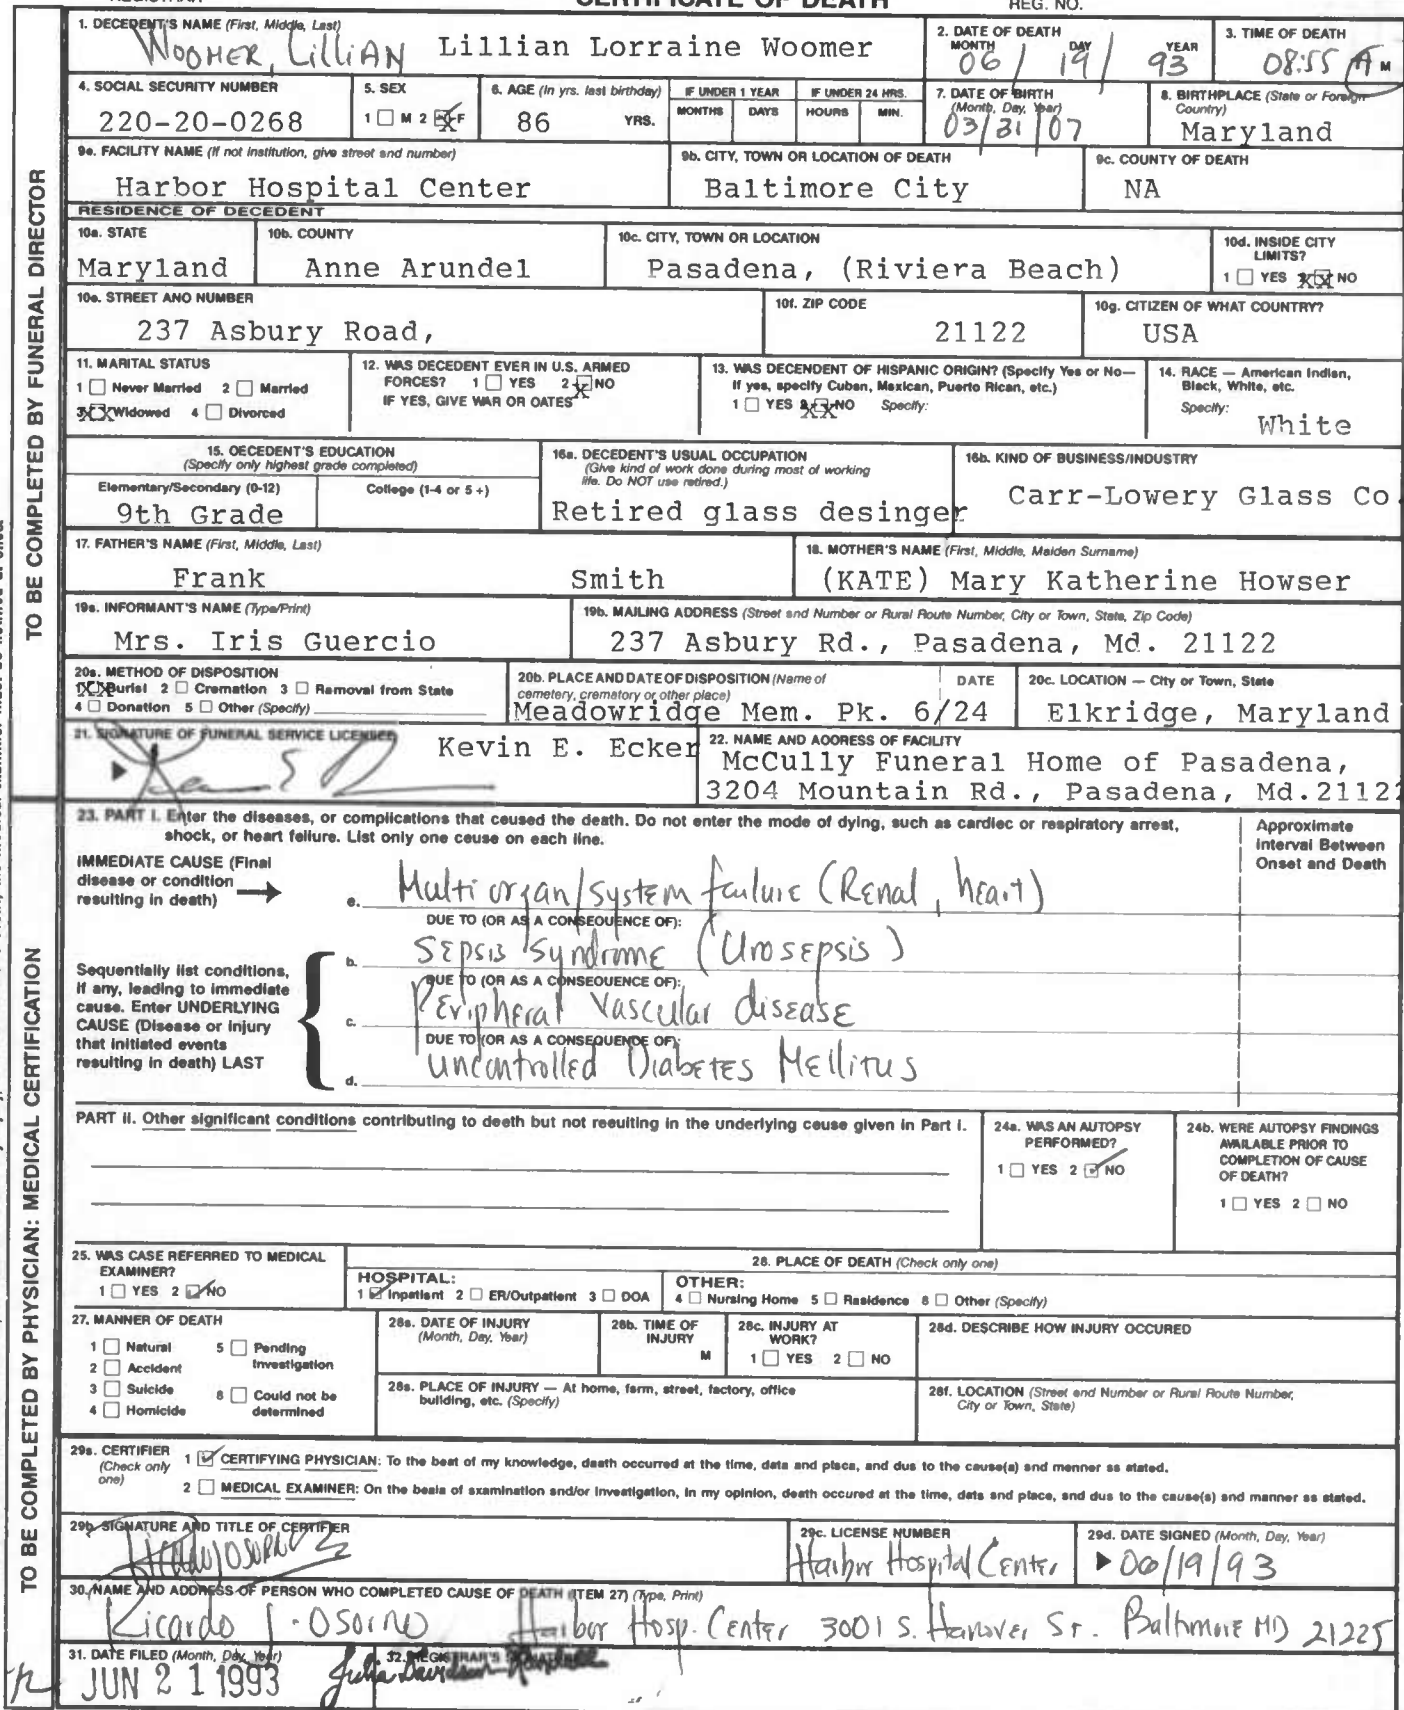 CERTIFICATE OF DEATH
REG. NO.
1. DECEDENT'S NAME (First, Middle, Last)
WOOMER, LILLIAN Lillian Lorraine Woomer
2. DATE OF DEATH
MONTH DAY YEAR
06 / 19 / 93
3. TIME OF DEATH
08:55 A M
4. SOCIAL SECURITY NUMBER
220-20-0268
5. SEX
1 M 2 F
6. AGE (In yrs. last birthday)
86 YRS.
IF UNDER 1 YEAR
MONTHS DAYS
IF UNDER 24 HRS.
HOURS MIN.
7. DATE OF BIRTH
(Month, Day, Year)
03/31/07
8. BIRTHPLACE (State or Foreign Country)
Maryland
9a. FACILITY NAME (If not institution, give street and number)
Harbor Hospital Center
9b. CITY, TOWN OR LOCATION OF DEATH
Baltimore City
9c. COUNTY OF DEATH
NA
RESIDENCE OF DECEDENT
10a. STATE
Maryland
10b. COUNTY
Anne Arundel
10c. CITY, TOWN OR LOCATION
Pasadena, (Riviera Beach)
10d. INSIDE CITY
LIMITS?
1 YES XX NO
10e. STREET AND NUMBER
237 Asbury Road,
10f. ZIP CODE
21122
10g. CITIZEN OF WHAT COUNTRY?
USA
11. MARITAL STATUS
1 Never Married 2 Married
3 XX Widowed 4 Divorced
12. WAS DECEDENT EVER IN U.S. ARMED
FORCES? 1 YES 2 X NO
IF YES, GIVE WAR OR DATES
13. WAS DECENDENT OF HISPANIC ORIGIN? (Specify Yes or No—
If yes, specify Cuban, Mexican, Puerto Rican, etc.)
1 YES XX NO Specify:
14. RACE — American Indian,
Black, White, etc.
Specify:
White
15. DECEDENT'S EDUCATION
(Specify only highest grade completed)
Elementary/Secondary (0-12) College (1-4 or 5 +)
9th Grade
16a. DECEDENT'S USUAL OCCUPATION
(Give kind of work done during most of working
life. Do NOT use retired.)
Retired glass desinger
16b. KIND OF BUSINESS/INDUSTRY
Carr-Lowery Glass Co.
17. FATHER'S NAME (First, Middle, Last)
Frank Smith
18. MOTHER'S NAME (First, Middle, Maiden Surname)
(KATE) Mary Katherine Howser
19a. INFORMANT'S NAME (Type/Print)
Mrs. Iris Guercio
19b. MAILING ADDRESS (Street and Number or Rural Route Number, City or Town, State, Zip Code)
237 Asbury Rd., Pasadena, Md. 21122
20a. METHOD OF DISPOSITION
1 XX Burial 2 Cremation 3 Removal from State
4 Donation 5 Other (Specify)
20b. PLACE AND DATE OF DISPOSITION (Name of
cemetery, crematory or other place) DATE
Meadowridge Mem. Pk. 6/24
20c. LOCATION — City or Town, State
Elkridge, Maryland
21. SIGNATURE OF FUNERAL SERVICE LICENSEE
Kevin E. Ecker
22. NAME AND ADDRESS OF FACILITY
McCully Funeral Home of Pasadena,
3204 Mountain Rd., Pasadena, Md.21122
TO BE COMPLETED BY FUNERAL DIRECTOR
23. PART I. Enter the diseases, or complications that caused the death. Do not enter the mode of dying, such as cardiac or respiratory arrest,
shock, or heart failure. List only one cause on each line.
Approximate
Interval Between
Onset and Death
IMMEDIATE CAUSE (Final
disease or condition
resulting in death)
a. Multi organ/system failure (Renal, heart)
DUE TO (OR AS A CONSEQUENCE OF):
b. Sepsis Syndrome (Urosepsis)
DUE TO (OR AS A CONSEQUENCE OF):
c. Peripheral Vascular disease
DUE TO (OR AS A CONSEQUENCE OF):
d. Uncontrolled Diabetes Mellitus
Sequentially list conditions,
if any, leading to immediate
cause. Enter UNDERLYING
CAUSE (Disease or injury
that initiated events
resulting in death) LAST
PART II. Other significant conditions contributing to death but not resulting in the underlying cause given in Part I.
24a. WAS AN AUTOPSY
PERFORMED?
1 YES 2 NO
24b. WERE AUTOPSY FINDINGS
AVAILABLE PRIOR TO
COMPLETION OF CAUSE
OF DEATH?
1 YES 2 NO
25. WAS CASE REFERRED TO MEDICAL
EXAMINER?
1 YES 2 NO
26. PLACE OF DEATH (Check only one)
HOSPITAL:
1 Inpatient 2 ER/Outpatient 3 DOA
OTHER:
4 Nursing Home 5 Residence 6 Other (Specify)
27. MANNER OF DEATH
1 Natural 5 Pending
2 Accident Investigation
3 Suicide 6 Could not be
4 Homicide determined
28a. DATE OF INJURY
(Month, Day, Year)
28b. TIME OF
INJURY
M
28c. INJURY AT
WORK?
1 YES 2 NO
28d. DESCRIBE HOW INJURY OCCURED
28e. PLACE OF INJURY — At home, farm, street, factory, office
building, etc. (Specify)
28f. LOCATION (Street and Number or Rural Route Number,
City or Town, State)
29a. CERTIFIER
(Check only
one)
1 CERTIFYING PHYSICIAN: To the best of my knowledge, death occurred at the time, date and place, and due to the cause(s) and manner as stated.
2 MEDICAL EXAMINER: On the basis of examination and/or investigation, in my opinion, death occured at the time, date and place, and due to the cause(s) and manner as stated.
29b. SIGNATURE AND TITLE OF CERTIFIER
29c. LICENSE NUMBER
Harbor Hospital Center
29d. DATE SIGNED (Month, Day, Year)
06/19/93
30. NAME AND ADDRESS OF PERSON WHO COMPLETED CAUSE OF DEATH (ITEM 27) (Type, Print)
Ricardo J. Osorno Harbor Hosp. Center 3001 S. Hanover St. Baltimore MD 21225
31. DATE FILED (Month, Day, Year)
JUN 21 1993
32. REGISTRAR'S SIGNATURE
TO BE COMPLETED BY PHYSICIAN: MEDICAL CERTIFICATION